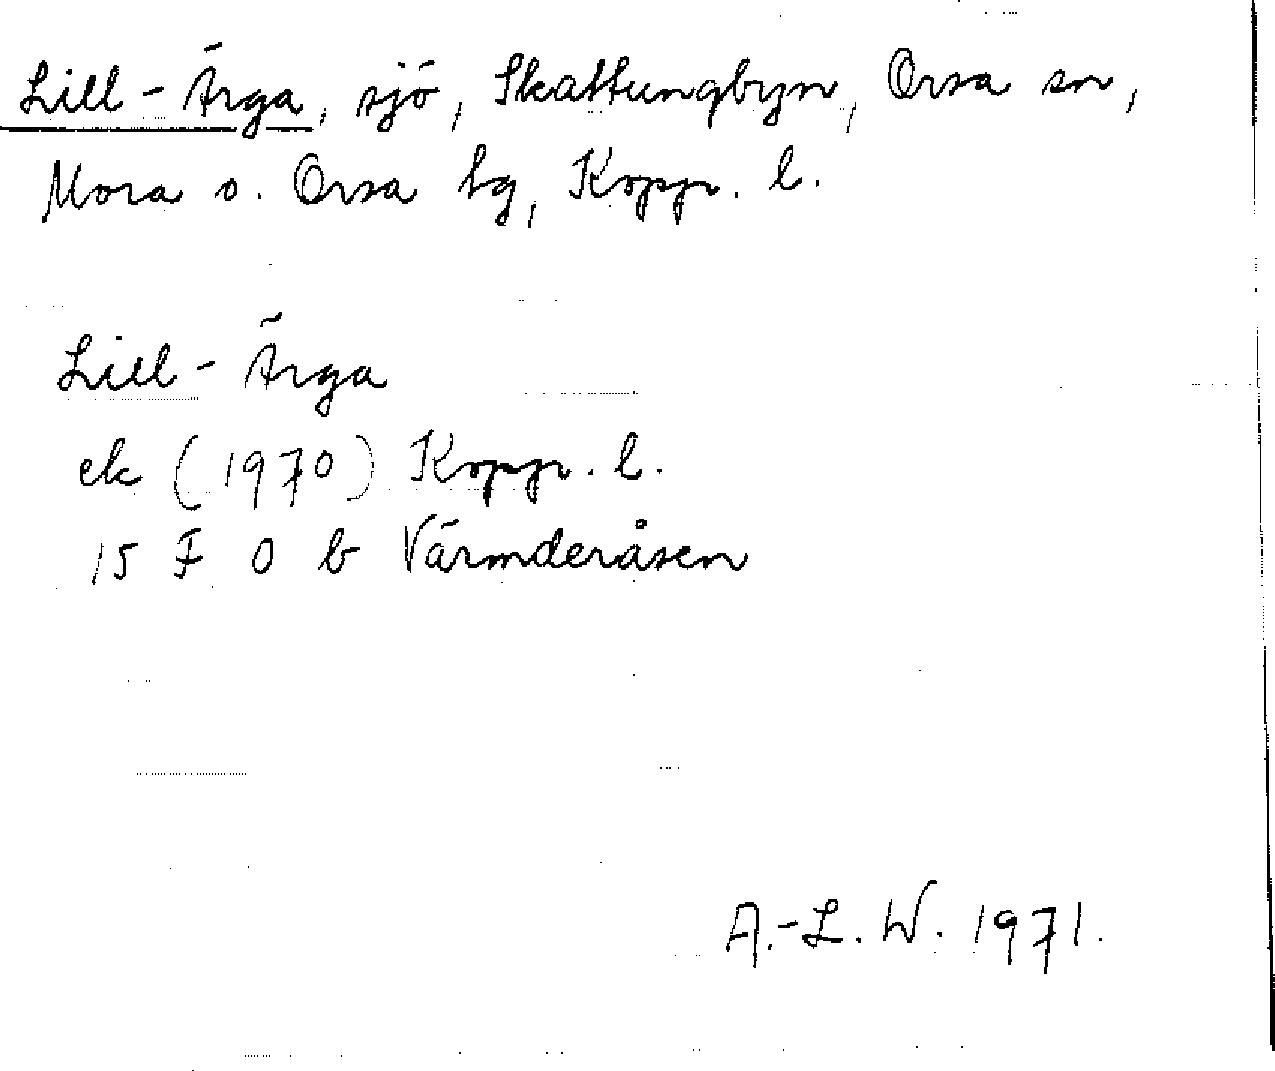 Lill-Ärga, sjö, Skattungbyn, Orsa sn,
Mora o. Orsa tg, Kopp. l.
Lill-Ärga
ek (1970) Kopp. l.
15 F 0 b Värmderåsen
A.-L. W. 1971.